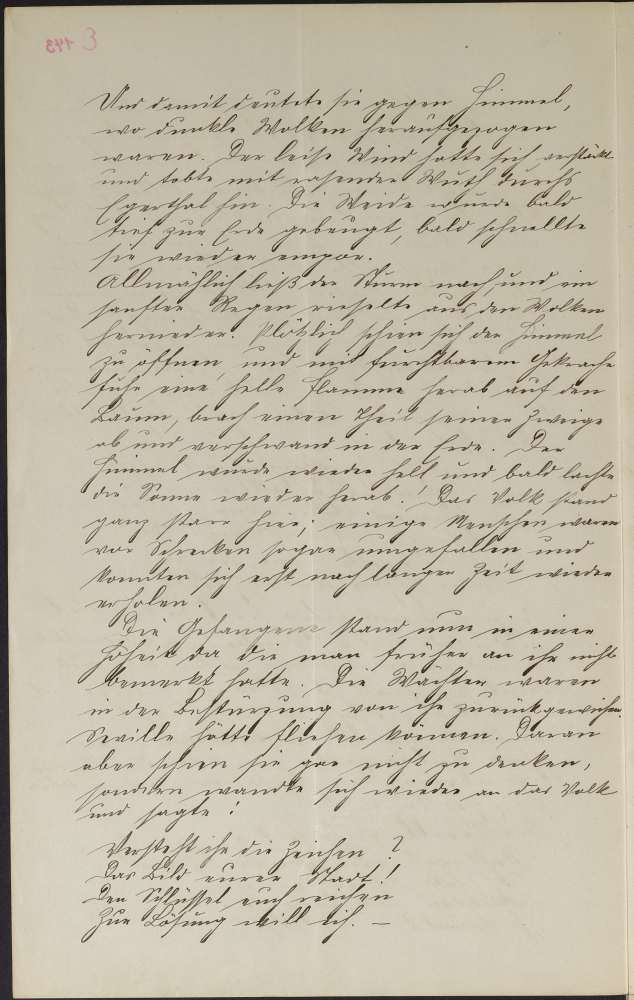 E 143
Und damit deutete sie gegen Himmel,
wo dunkle Wolken heraufgezogen
waren. Der leise Wind hatte sich verstärkt
und tobte mit rasender Wuth durchs
Egerthal hin. Die Weide wurde bald
tief zur Erde gebeugt, bald schnellte
sie wieder empor.
Allmählich ließ der Sturm nach, und ein
sanfter Regen rieselte aus den Wolken
hernieder. Plötzlich schien sich der Himmel
zu öffnen, und mit furchtbarem Gekrache
fuhr eine helle Flamme herab auf den
Baum, brach einen Theil seiner Zweige
ab und verschwand in der Erde. Der
Himmel wurde wieder hell und bald lachte
die Sonne wieder herab! Das Volk stand
ganz starr hier; einige Menschen waren
vor Schrecken sogar umgefallen und
konnten sich erst nach langer Zeit wieder
erholen.
Die Gefangene stand nun in einer
Hoheit da die man früher an ihr nicht
bemerkt hatte. Die Wächter waren
in der Bestürzung von ihr zurückgewichen.
Seville hätte fliehen können. Daran
aber schien sie gar nicht zu denken,
sondern wandte sich wieder an das Volk
und sagte:
Versteht ihr die Zeichen?
Das Bild eurer Stadt!
Den Schlüssel euch reichen
Zur Lösung will ich. —